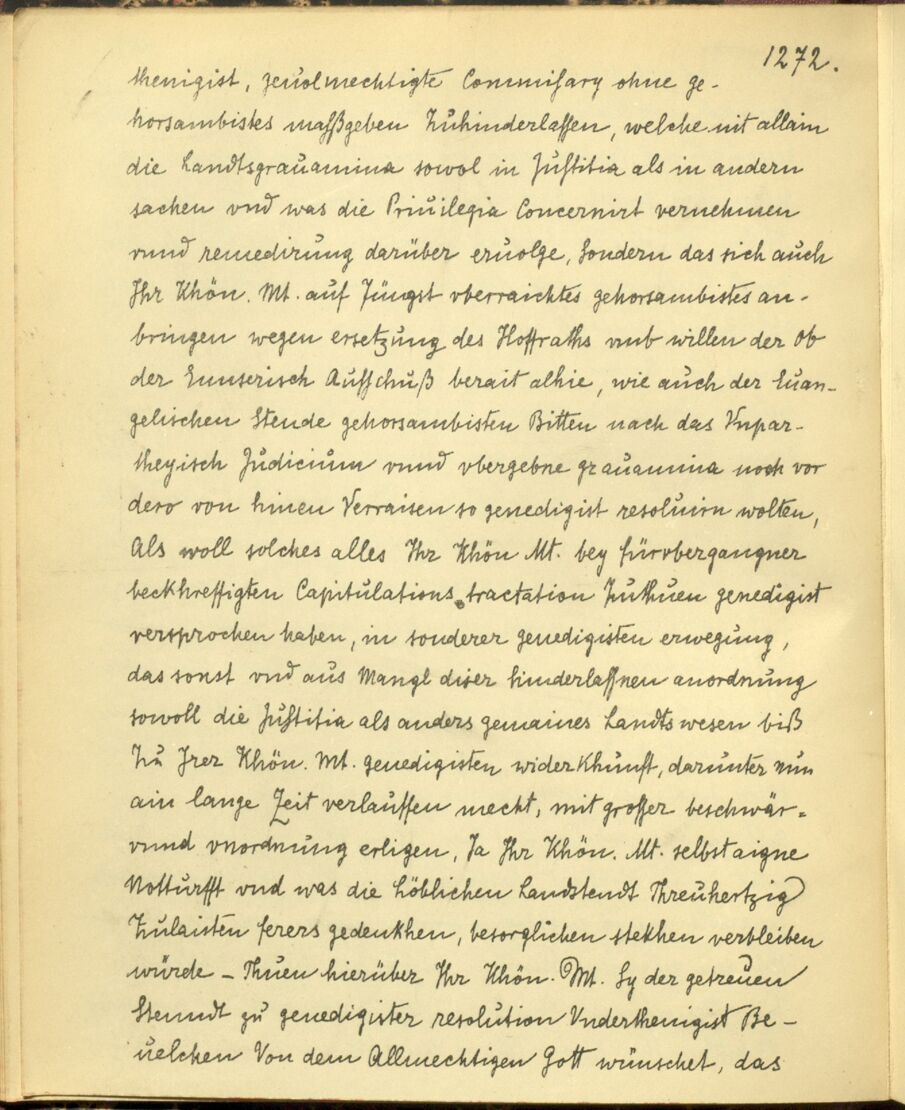 1272.
thenigist, zeuolmechtigte Commissary ohne ge-
horsambistes massßgeben Zuhinderlassen, welche nit allain
die Landtsgrauamina sowol in Justitia als in andern
sachen vnd was die Priuilegia Concernirt vernehmen
vnnd remedirung darüber eruolge, Sondern das sich auch
Ihr Khön. Mt. auf Jüngst vberraichtes gehorsambistes an-
bringen wegen ersetzung des Hoffraths vmb willen der Ob
der Ennserisch Ausschuß berait alhie, wie auch der Euan-
gelischen Stende gehorsambisten Bitten nach das Vnpar-
theyisch Judicium vnnd vbergebne grauamina noch vor
dero von hinen Verraisen so genedigist resoluirn wolten,
Als woll solches alles Ihr Khön Mt. bey fürvbergangner
beckhreffigten Capitulations tractation Zuthuen genedigist
versprochen haben, in sonderer genedigisten erwegung,
das sonst vnd aus Mangl diser hinderlassnen anordnung
sowoll die Justitia als anders gemaines Landtswesen biß
Zu Irer Khön. Mt. genedigisten widerKhunft, darunter nun
ain lange Zeit verlauffen mecht, mit grosser beschwär-
vnnd vnordnung erligen, Ja Ihr Khön. Mt. selbst aigne
Notturfft vnd was die Löblichen Landstendt Threuhertzig
Zulaisten ferers gedenkhen, besorglichen stekhen verbleiben
würde – Thuen hierüber Ihr Khön. Mt. Sy der getreuen
Stenndt zu genedigister resolution Vnderthenigist Be-
uelchen Von dem Allmechtigen Gott wünschet, das